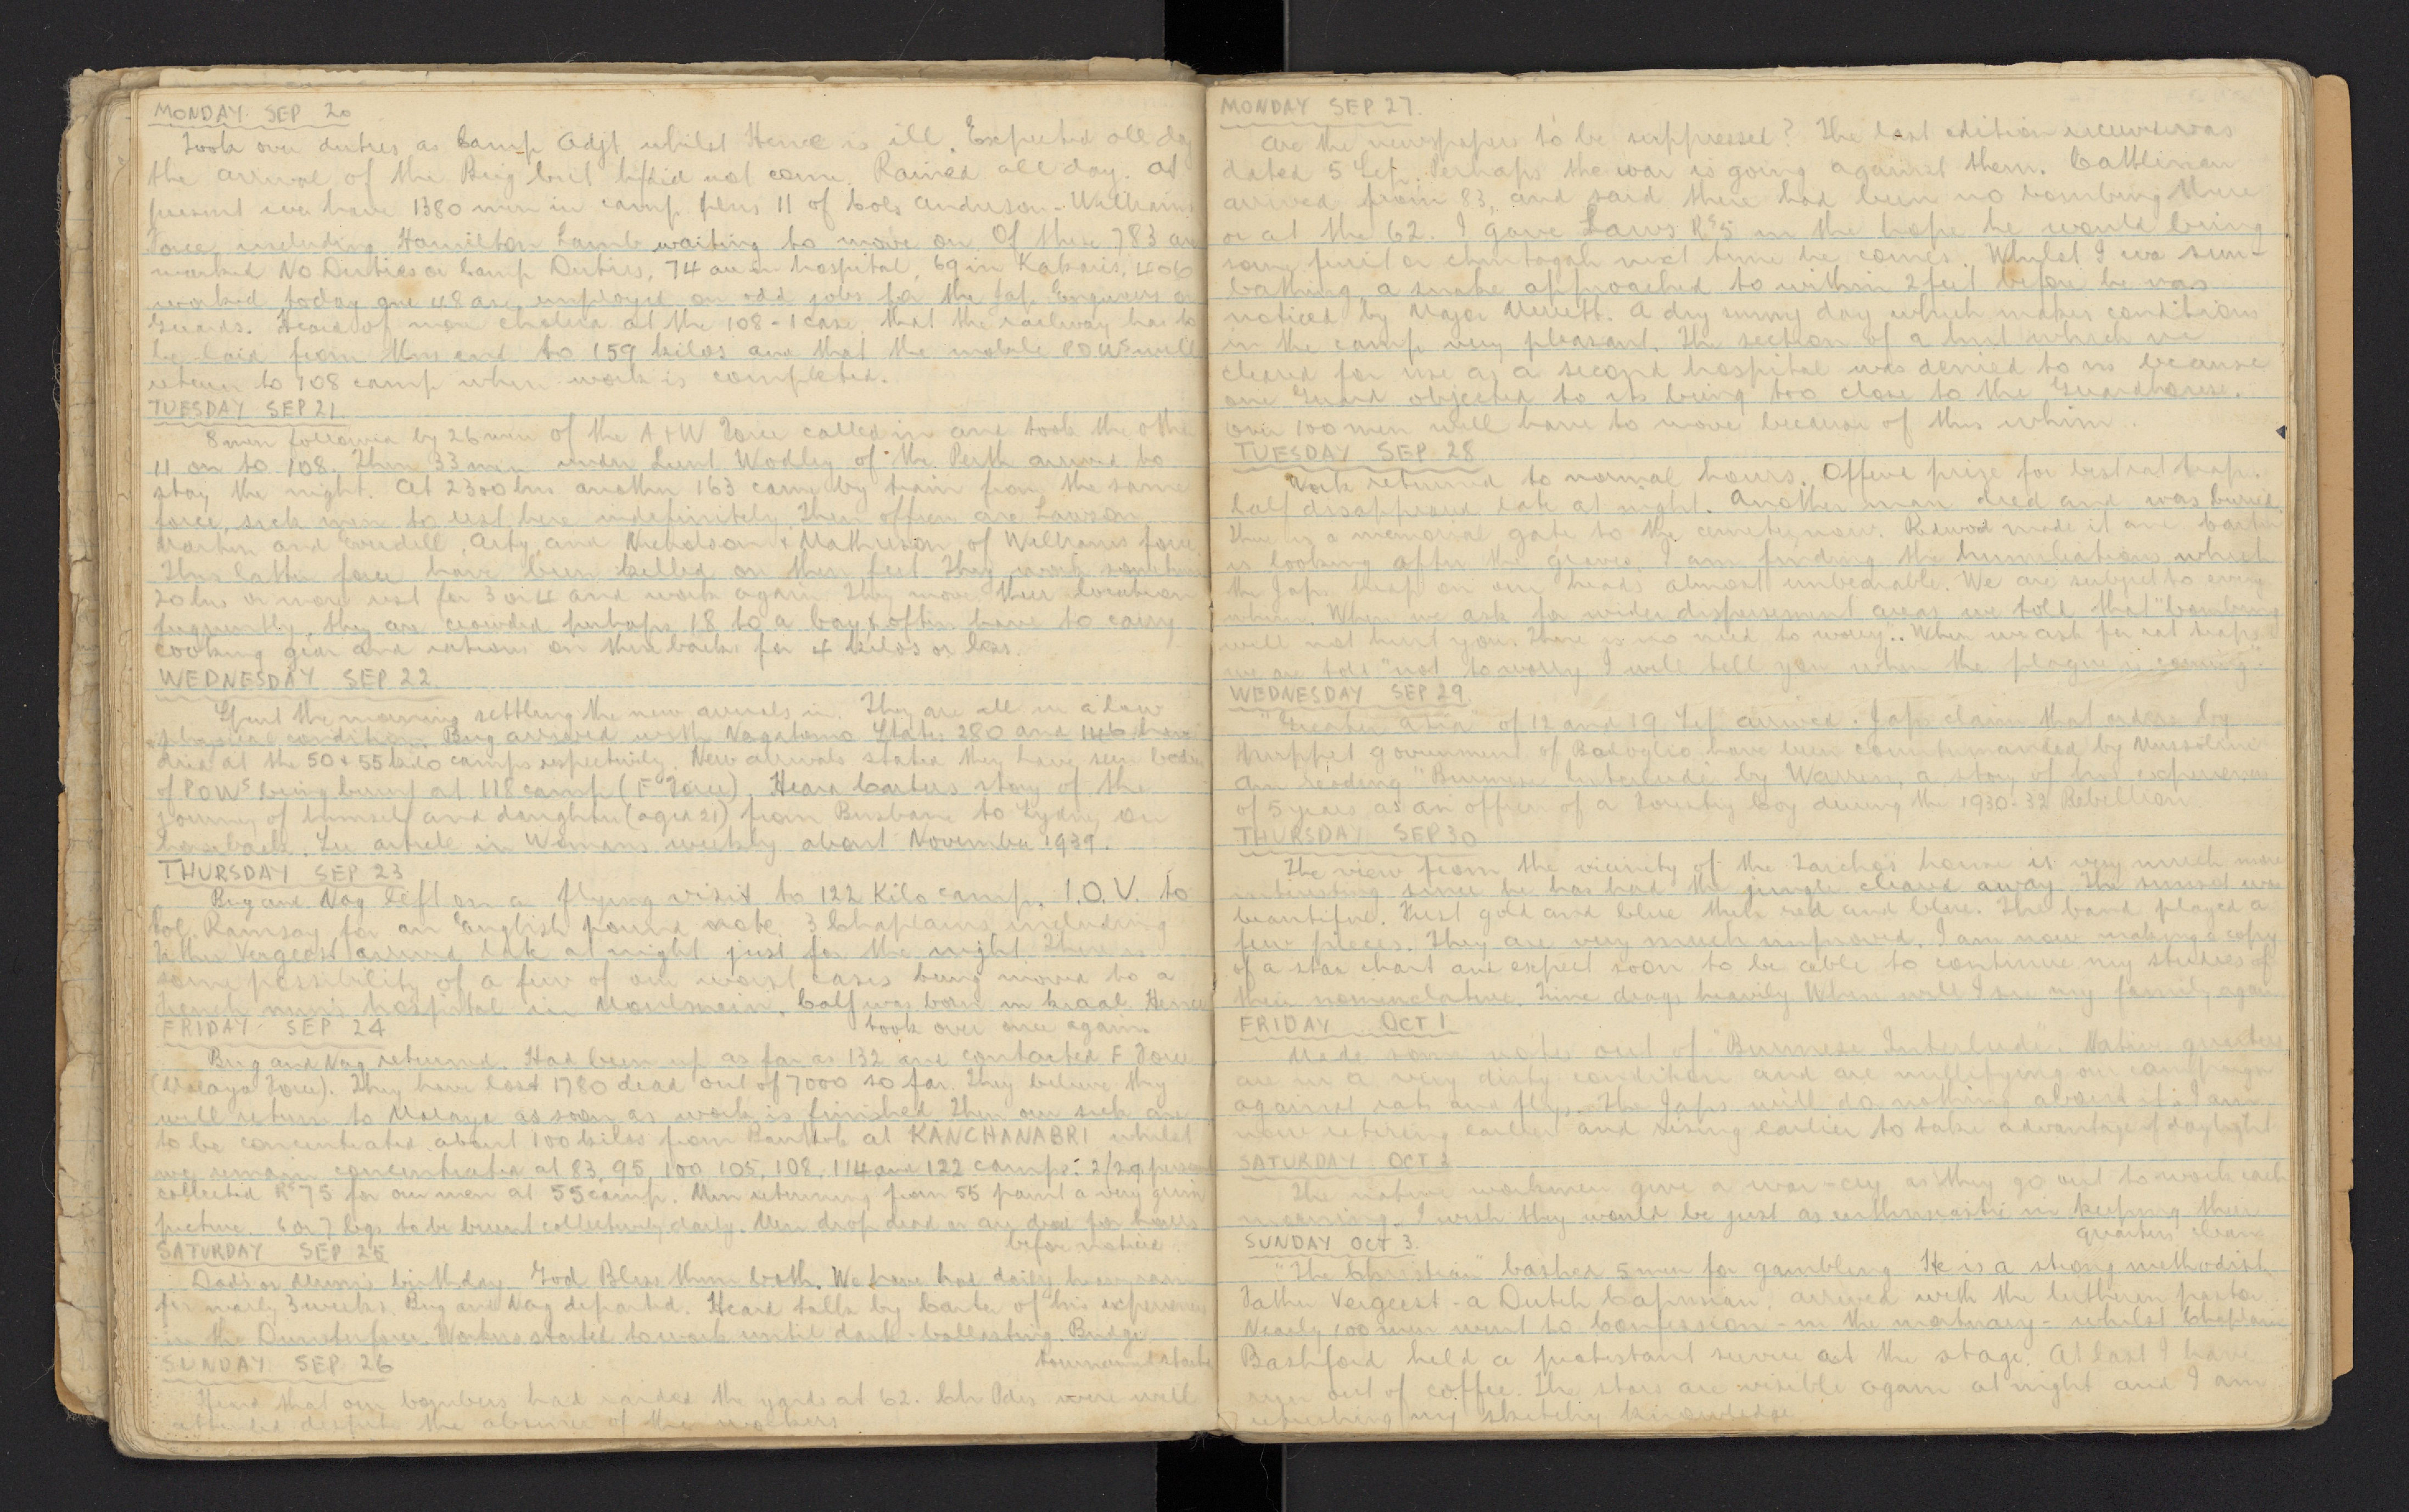 MONDAY SEP 20
Took over duties as Camp Adjt whilst Hence is ill. Expected all day
the arrival of the Brig but he did not come. Rained all day. At
present we have 1380 men in camp plus 11 of Cols Anderson - Williams
Force including Hamilton Lamb waiting to move on. Of these 783 are
marked No Duties or Camp Duties, 74 are in hospital, 69 in Kakaris, 406
worked today and 48 are employed on odd jobs for the Jap Engineers or
Guards. Heard of more cholera at the 108 - 1 case, that the railway has to
be laid from this end to 159 kilos and that the mobile POWs will
return to 108 camp when work is completed.
TUESDAY SEP 21
8 men followed by 26 men of the A + W Force called in and took the other
11 on to 108. Then 33 men under Lieut Wodley of the Perth arrived to
stay the night. At 2300 hrs another 163 came by train from the same
force, sick men to rest here indefinitely. Their officers are Lawson
Martin and , Arty, and Nicholson + Mathieson of Williams force.
This latter force have been killed on their feet. They work sometimes
20 hrs or more rest for 3 or 4 and work again. They move their location
frequently, they are crowded perhaps 18 to a bay + often have to carry
cooking gear and rations on their backs for 4 kilos or less.
WEDNESDAY SEP 22
Spent the morning settling the new arrivals in. They are all in a low
physical condition. Brig arrived with Nagatomo. States 280 and 146 have
died at the 50 + 55 kilo camps respectively. New arrivals stated they have seen bodies
of POWs being burnt at 118 camp (F Force). Heard Carters story of the
journey of himself and daughter (aged 21) from Brisbane to Sydney on
horseback. See article in Womans weekly about November 1939.
THURSDAY SEP 23
Brig and Nag left on a flying visit to 122 Kilo camp. I.O.V. to
Col. Ramsay for an English pound note. 3 Chaplains including
Father Vergeest arrived late at night just for the night. There is
some possibility of a few of our worst cases being moved to a
French nun's hospital in Moulmein. Calf was born in kraal. Hence
took over once again.
FRIDAY SEP 24
Brig and Nag returned. Had been up as far as 132 and contacted F Force
(Malaya Force). They have lost 1780 dead out of 7000 so far. They believe they
will return to Malaya as soon as work is finished. Then our sick are
to be concentrated about 100 kilos from Bankok at KANCHANABRI whilst
we remain concentrated at 83, 95, 100, 105, 108, 114 and 122 camps. 2/29 personnel
collected Rs 75 for our men at 55 camp. Men returning from 55 paint a very grim
picture. 6 or 7 legs to be burnt collectively daily. Men drop dead or are dead for hours
before notice.
SATURDAY SEP 25
Dad's or Mum's birthday. God Bless them both. We have had daily heavy rain
for nearly 3 weeks. Brig and Nag departed. Heard talk by Carter of his experiences
in the Dunsterforce. Workers started to work until dark - ballasting. Bridge
tournament starts
SUNDAY SEP 26
Heard that our bombers had raided the yards at 62. Ch Pdes were well
attended despite the absence of the workers
MONDAY SEP 27.
Are the newspapers to be suppressed? The last edition received was
dated 5 Sep. Perhaps the war is going against them. Cattlemen
arrived from 83, and said there had been no bombing there
or at the 62. I gave Laws Rs 5 in the hope he would bring
some fruit or chintagah next time he comes. Whilst I was sun-
bathing a snake approached to within 2 feet before he was
noticed by Major Merrett. A dry sunny day which makes conditions
in the camp very pleasant. The section of a hut which we
cleared for use as a second hospital was denied to us because
one Guard objected to its being too close to the Guardhouse.
Over 100 men will have to move because of this whim.
TUESDAY SEP 28
Work returned to normal hours. Offered prize for best rat trap.
Calf disappeared late at night. Another man died and was buried.
There is a memorial gate to the cemetery now. made it and Carter
is looking after the graves. I am finding the humiliations which
the Japs heap on our heads almost unbearable. We are subject to every
whim. When we ask for wider dispersement areas we told that "bombing
will not hurt you. There is no need to worry". When we ask for rat traps
we are told "not to worry I will tell you when the plague is coming".
WEDNESDAY SEP 29
"Greater Asia" of 12 and 19 Sep arrived. Japs claim that orders by
the puppet government of Badoglio have been countermanded by Mussolini
Am reading "Burmese Interlude" by Warren, a story of his experiences
of 5 years as an officer of a Forestry Coy during the 1930-32 Rebellion
THURSDAY SEP 30
The view from the vicinity of the Tarcho's house is very much more
interesting since he has had the jungle cleared away. The sunset was
beautiful. First gold and blue then red and blue. The band played a
few pieces. They are very much improved. I am now making a copy
of a star chart and expect soon to be able to continue my studies of
their nomenclature. Time drags heavily. When will I see my family again
FRIDAY OCT 1
Made some notes out of "Burmese Interlude". Native quarters
are in a very dirty condition and are nullifying our campaign
against rats and flys. The Japs will do nothing about it. I am
now retiring earlier and rising earlier to take advantage of daylight
SATURDAY OCT 2
The native workmen give a war-cry as they go out to work each
morning. I wish they would be just as enthusiastic in keeping their
quarters clean.
SUNDAY OCT 3.
"The Christian" bashed 5 men for gambling. He is a strong methodist
Father Vergeest - a Dutch Capucian, arrived with the lutheran pastor
Nearly 100 men went to Confession - in the mortuary - whilst Chaplain
Bashford held a protestant service at the stage. At last I have
run out of coffee. The stars are visible again at night and I am
refreshing my sketchy knowledge